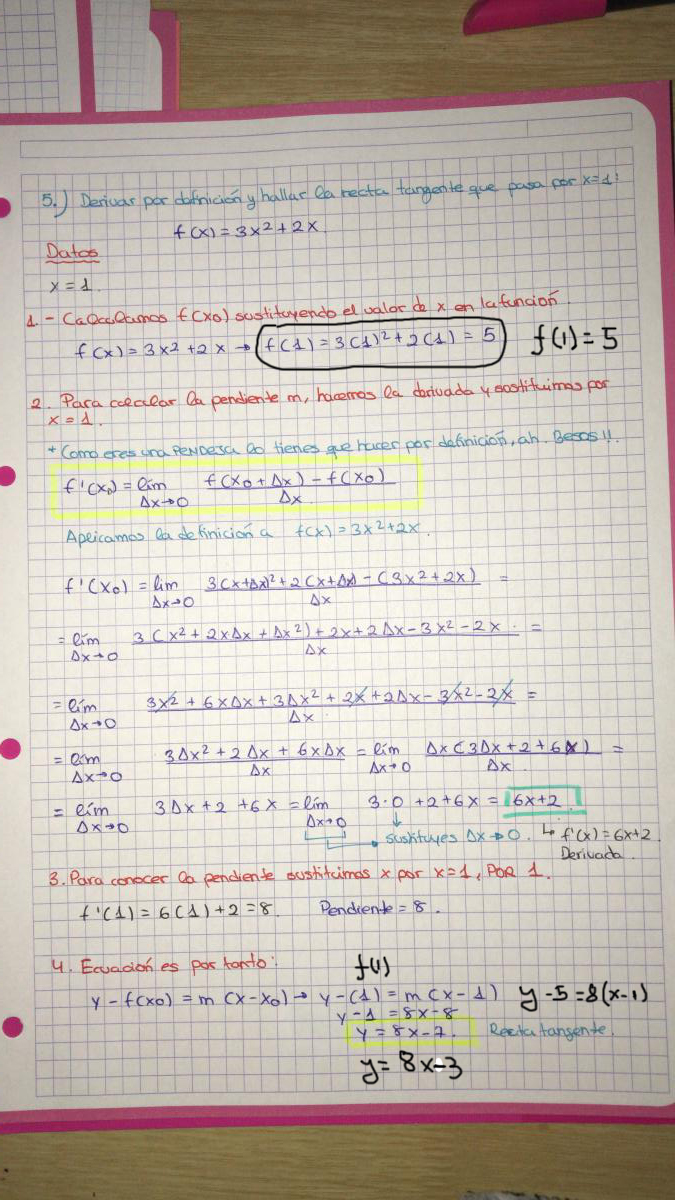 5.) Derivar por definición y hallar la recta tangente que pasa por x=1:
f(x) = 3x² + 2x.
Datos
x = 1.
1.- Calculamos f(x0) sustituyendo el valor de x en la función.
f(x) = 3x² + 2x → f(1) = 3(1)² + 2(1) = 5 f(1) = 5
2. Para calcular la pendiente m, hacemos la derivada y sustituimos por
x = 1.
* Como eres una PENDEJA lo tienes que hacer por definición, ah. Besos!!.
f'(x₀) = lím f(x0 + Δx) - f(x0)
Δx→0 Δx
Aplicamos la definición a f(x) = 3x² + 2x.
f'(x0) = lím 3(x+Δx)² + 2(x+Δx) - (3x² + 2x) =
Δx→0 Δx
= lím 3(x² + 2xΔx + Δx²) + 2x + 2Δx - 3x² - 2x =
Δx→0 Δx
= lím 3x² + 6xΔx + 3Δx² + 2x + 2Δx - 3x² - 2x =
Δx→0 Δx
= lím 3Δx² + 2Δx + 6xΔx = lím Δx(3Δx + 2 + 6x) =
Δx→0 Δx Δx→0 Δx
= lím 3Δx + 2 + 6x = lím 3·0 + 2 + 6x = 6x+2.
Δx→0 Δx→0
sustituyes Δx→0. ↳ f'(x) = 6x+2.
Derivada.
3. Para conocer la pendiente sustituimos x por x=1, POR 1.
f'(1) = 6(1) + 2 = 8. Pendiente = 8.
4. Ecuación es por tanto: f(1)
y - f(x0) = m(x - x0) → y - (1) = m(x - 1) y - 5 = 8(x-1)
y - 1 = 8x - 8
y = 8x - 7. Recta tangente.
y = 8x - 3